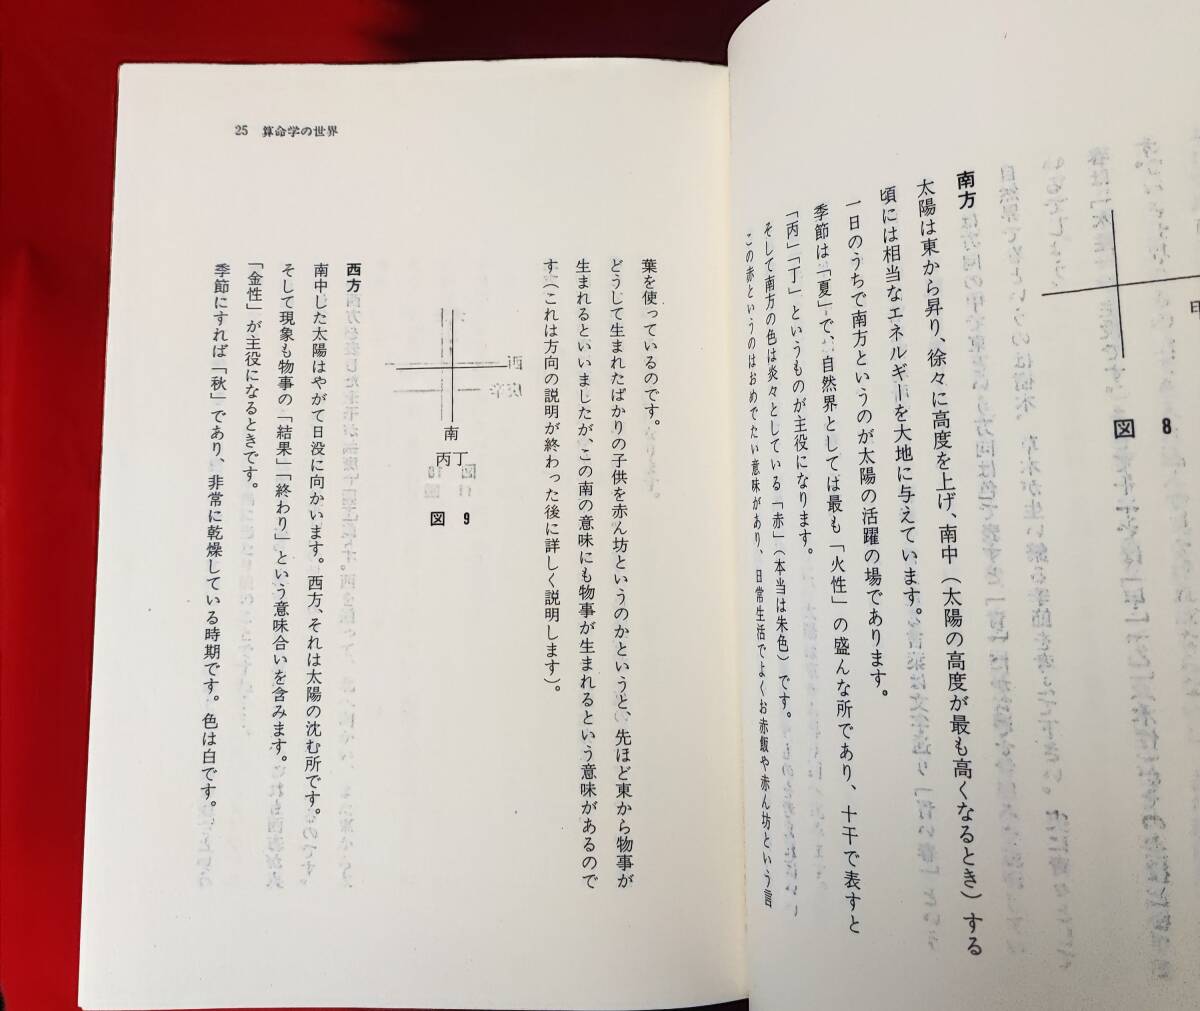 図 8
南方
太陽は東から昇り、徐々に高度を上げ、南中（太陽の高度が最も高くなるとき）する
頃には相当なエネルギーを大地に与えています。
一日のうちで南方というのが太陽の活躍の場であります。
季節は「夏」で、自然界としては最も「火性」の盛んな所であり、十干で表すと
「丙」「丁」というものが主役になります。
そして南方の色は炎々としている「赤」（本当は朱色）です。
この赤というのはおめでたい意味があり、日常生活でよくお赤飯や赤ん坊という言
25 算命学の世界
葉を使っているのです。
どうして生まれたばかりの子供を赤ん坊というのかというと、先ほど東から物事が
生まれるといいましたが、この南の意味にも物事が生まれるという意味があるので
す（これは方向の説明が終わった後に詳しく説明します）。
南
丙丁
図 9
西方
南中した太陽はやがて日没に向かいます。西方、それは太陽の沈む所です。
そして現象も物事の「結果」「終わり」という意味合いを含みます。
「金性」が主役になるときです。
季節にすれば「秋」であり、非常に乾燥している時期です。色は白です。